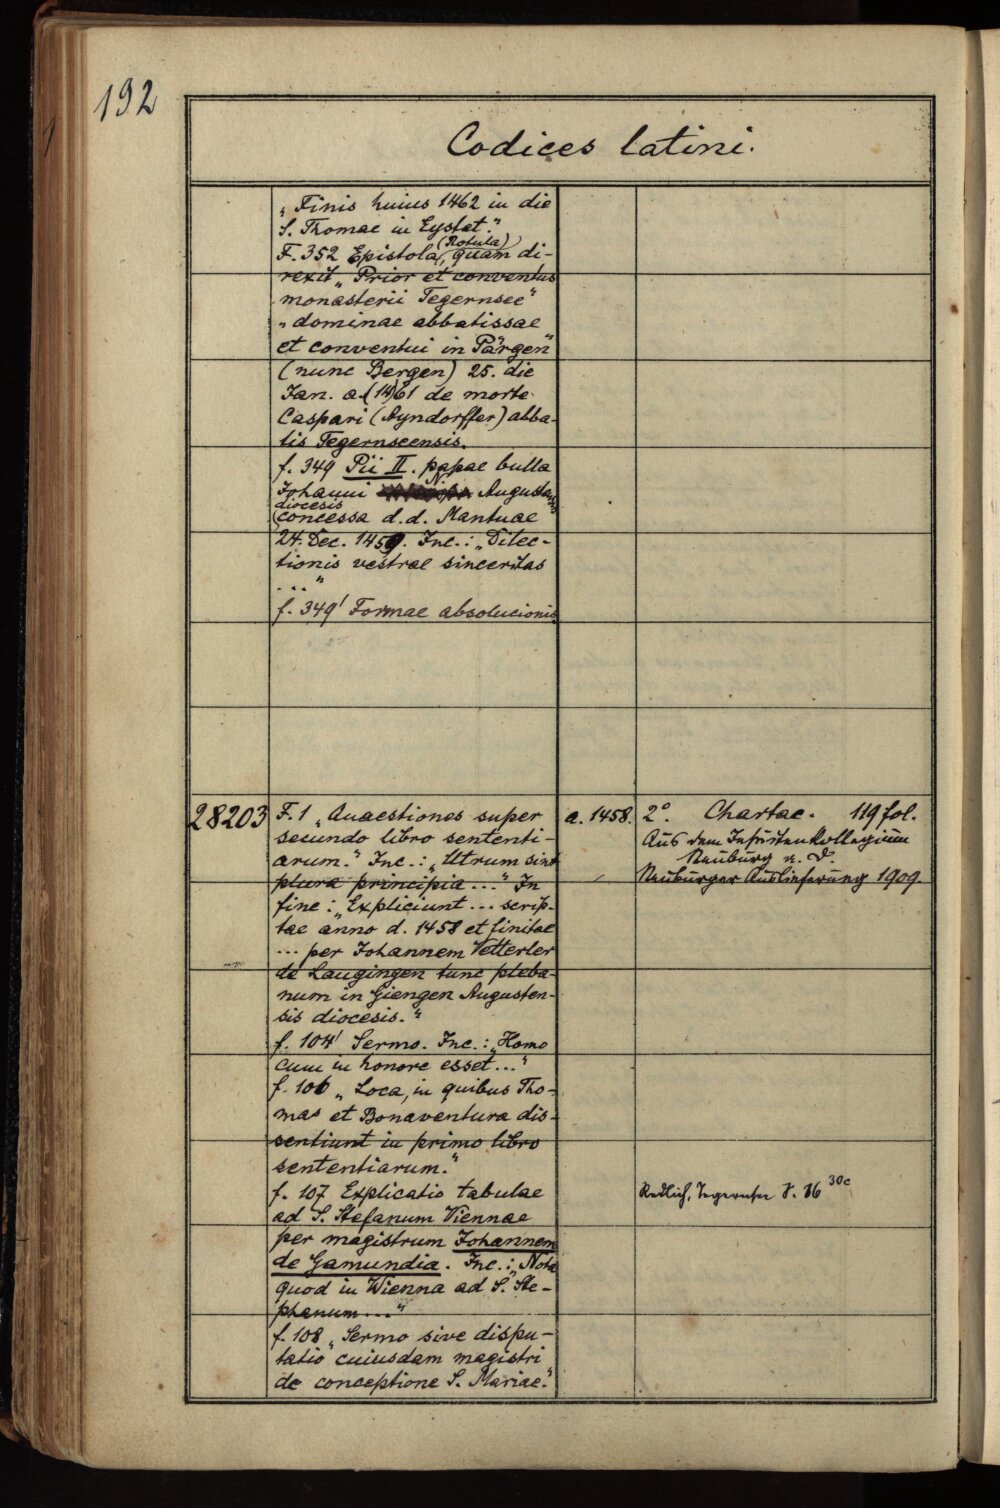 192
Codices latini.
„Finis huius 1462 in die
S. Thomae in Eystet."
(Rotula)
F. 352 Epistola, quam di-
rexit „Prior et conventus
monasterii Tegernsee"
„dominae abbatissae
et conventui in Pärgen"
(nunc Bergen) 25. die
Jan. a. (14)61 de morte
Caspari (Ayndorffer) abba-
tis Tegernseensis.
f. 349 Pii II. papae bulla
Johanni Augustensis
diocesis
concessa d. d. Mantuae
24. Dec. 1459. Inc.: „Dilec-
tionis vestrae sinceritas
..."
f. 349' Formae absolucionis
28203
F. 1 „Quaestiones super
secundo libro sententi-
arum." Inc.: „Utrum sint
plura principia ..." In
fine: „Expliciunt ... scrip-
tae anno d. 1458 et finitae
... per Johannem Vetterler
de Laugingen tunc pleba-
num in Giengen Augusten-
sis diocesis."
f. 104' Sermo. Inc.: „Homo
cum in honore esset ..."
f. 106 „Loca, in quibus Tho-
mas et Bonaventura dis-
sentiunt in primo libro
sententiarum."
f. 107 Explicatio tabulae
ad S. Stefanum Viennae
per magistrum Johannem
de Gamundia. Inc.: „Nota
quod in Wienna ad S. Ste-
phanum ..."
f. 108 „Sermo sive dispu-
tatio" cuiusdam magistri
de conceptione S. Mariae."
a. 1458.
2°. Chartac. 119 fol.
Aus dem Jesuitenkollegium
Neuburg a. D.
Neuburger Auslieferung 1909.
Redlich, Tegernsee S. 86 30c